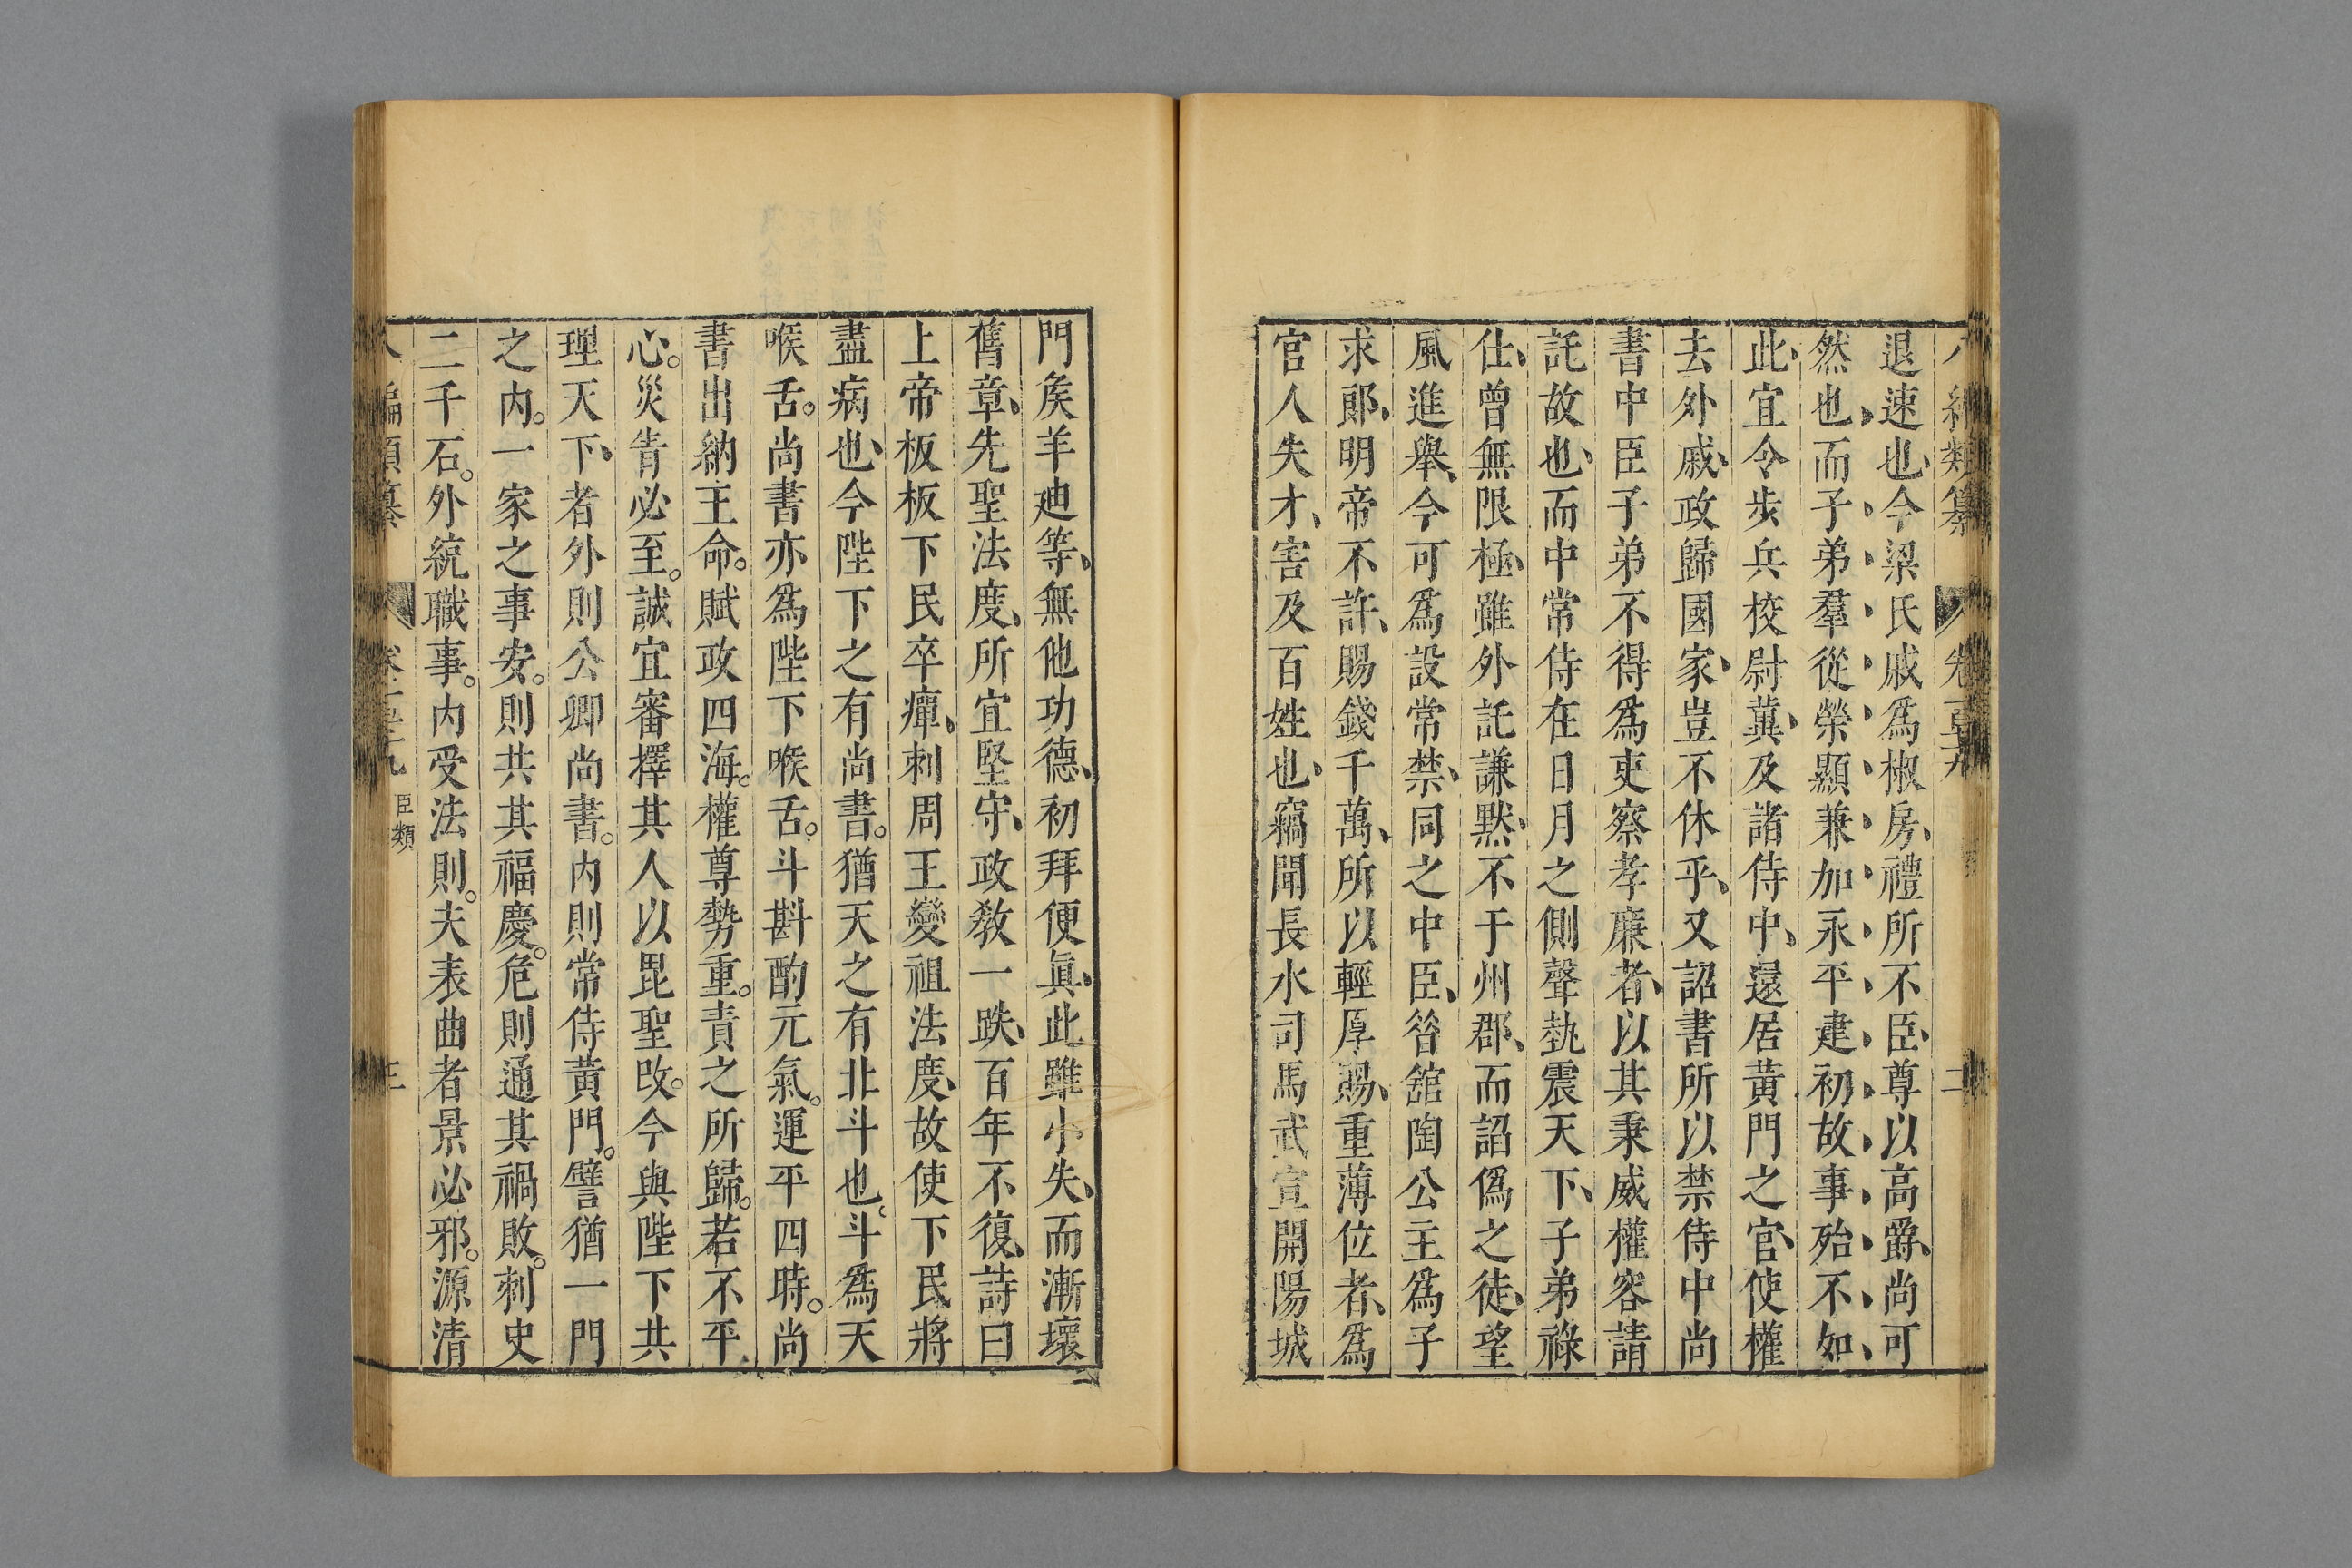 退速也、今梁氏戚爲椒房、禮所不臣、尊以高爵、尚可
然也、而子弟羣從、榮顯兼加、永平建初故事、殆不如
此、宜令步兵校尉冀、及諸侍中、還居黃門之官、使權
去外戚、政歸國家、豈不休乎、又詔書所以禁侍中尚
書中臣子弟不得爲吏察孝廉者、以其秉威權容請
託故也、而中常侍在日月之側聲埶震天下、子弟祿
仕、曾無限極、雖外託謙默、不于州郡、而諂僞之徒、望
風進舉、今可爲設常禁、同之中臣、昝舘陶公主爲子
求郎、明帝不許、賜錢千萬、所以輕厚賜、重薄位者、爲
官人失才、害及百姓也、竊聞長水司馬武宣開陽城
門矦羊廸等、無他功德、初拜便眞、此雖小失、而漸壞
舊章、先聖法度、所宜堅守、政敎一跌、百年不復、詩曰
上帝板板下民卒癉、刺周王變祖法度、故使下民將
盡病也、今陛下之有尚書。猶天之有北斗也、斗爲天
喉舌。尚書亦爲陛下喉舌。斗斟酌元氣。運平四時。尚
書出納王命。賦政四海。權尊勢重。責之所歸。若不平
心。災眚必至。誠宜審擇其人以毘聖政。今與陛下共
理天下、者外則公卿尚書。内則常侍黃門。譬猶一門
之内。一家之事安。則共其福慶。危則通其禍敗。刺史
二千石。外統職事。内受法則。夫表曲者景必邪。源清
編類纂
臣類
三